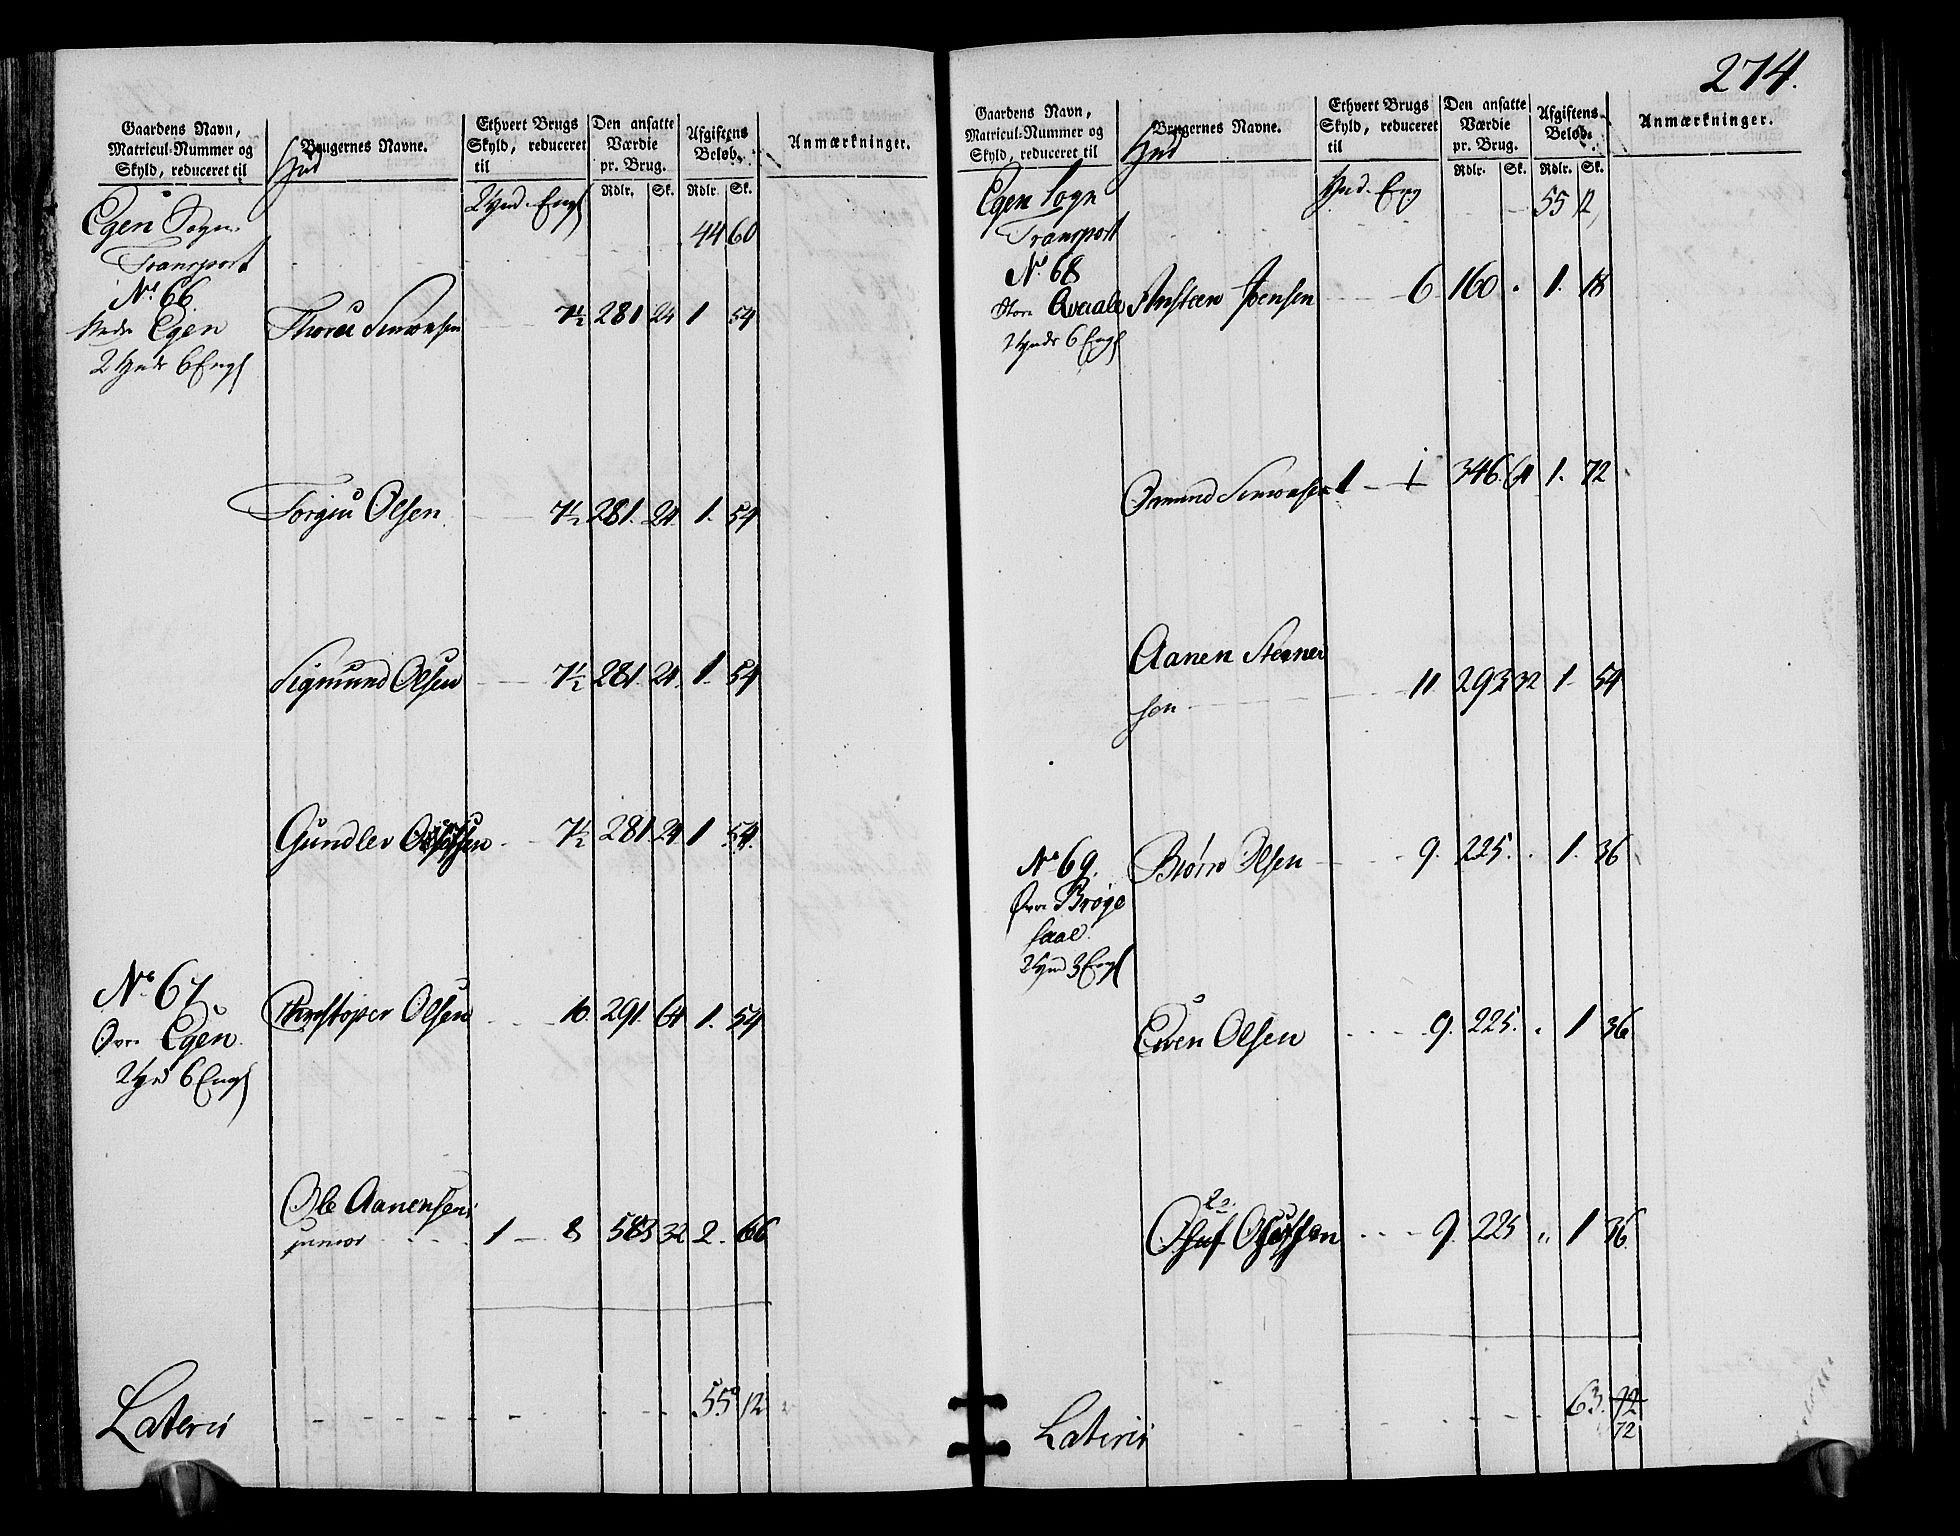 274.
Gaardens Navn,
Matricul-Nummer og
Skyld, reduceret til
Brugernes Navne.
Ethvert Brugs
Skyld, reduceret
til
Den ansatte
Værdie
pr. Brug.
Afgiftens
Beløb.
Anmærkninger.
Hud
Rdlr. Sk. Rdlr. Sk.
Egen Sogn
Transport 44 60
No. 66
Nedre Egen
2 Hude 6 Engl
Simonsen 7½ 281 24 1 54
Torgiu Olsen 7½ 281. 24. 1. 54
Sigmund Olsen 7½ 281. 24. 1. 54
Gundler 7½ 281 24 1 54.
No. 67.
Øvre Egen.
2 Hud 6 Engl
Christopher Olsen 10. 291. 64 1. 54
Ole Aanensen
junior 1 — 8 583 32 2. 66
Lateris 55 12
Gaardens Navn,
Matricul-Nummer og
Skyld, reduceret til
Brugernes Navne.
Ethvert Brugs
Skyld, reduceret
til
Den ansatte
Værdie
pr. Brug.
Afgiftens
Beløb.
Anmærkninger.
Hud
Rdlr. Sk. Rdlr. Sk.
Hud. Eng
Egen Sogn 55 12
Transport
No. 68
Store Qvaale
2 Hude 6 Engl
Ansteen Joensen 6 160 " 1. 18
Osmund Simonsen 1 — 1 346. 64 1. 72
Aanen Stener
sen 11 293 32 1. 54
No. 69.
Øvre Brøge
saal
2 Hud 3 Engl
Biørn Olsen 9. 225. " 1. 36
Even Olsen 9. 225. " 1 36
9. 225 " 1 36.
Lateris 63. 72
72